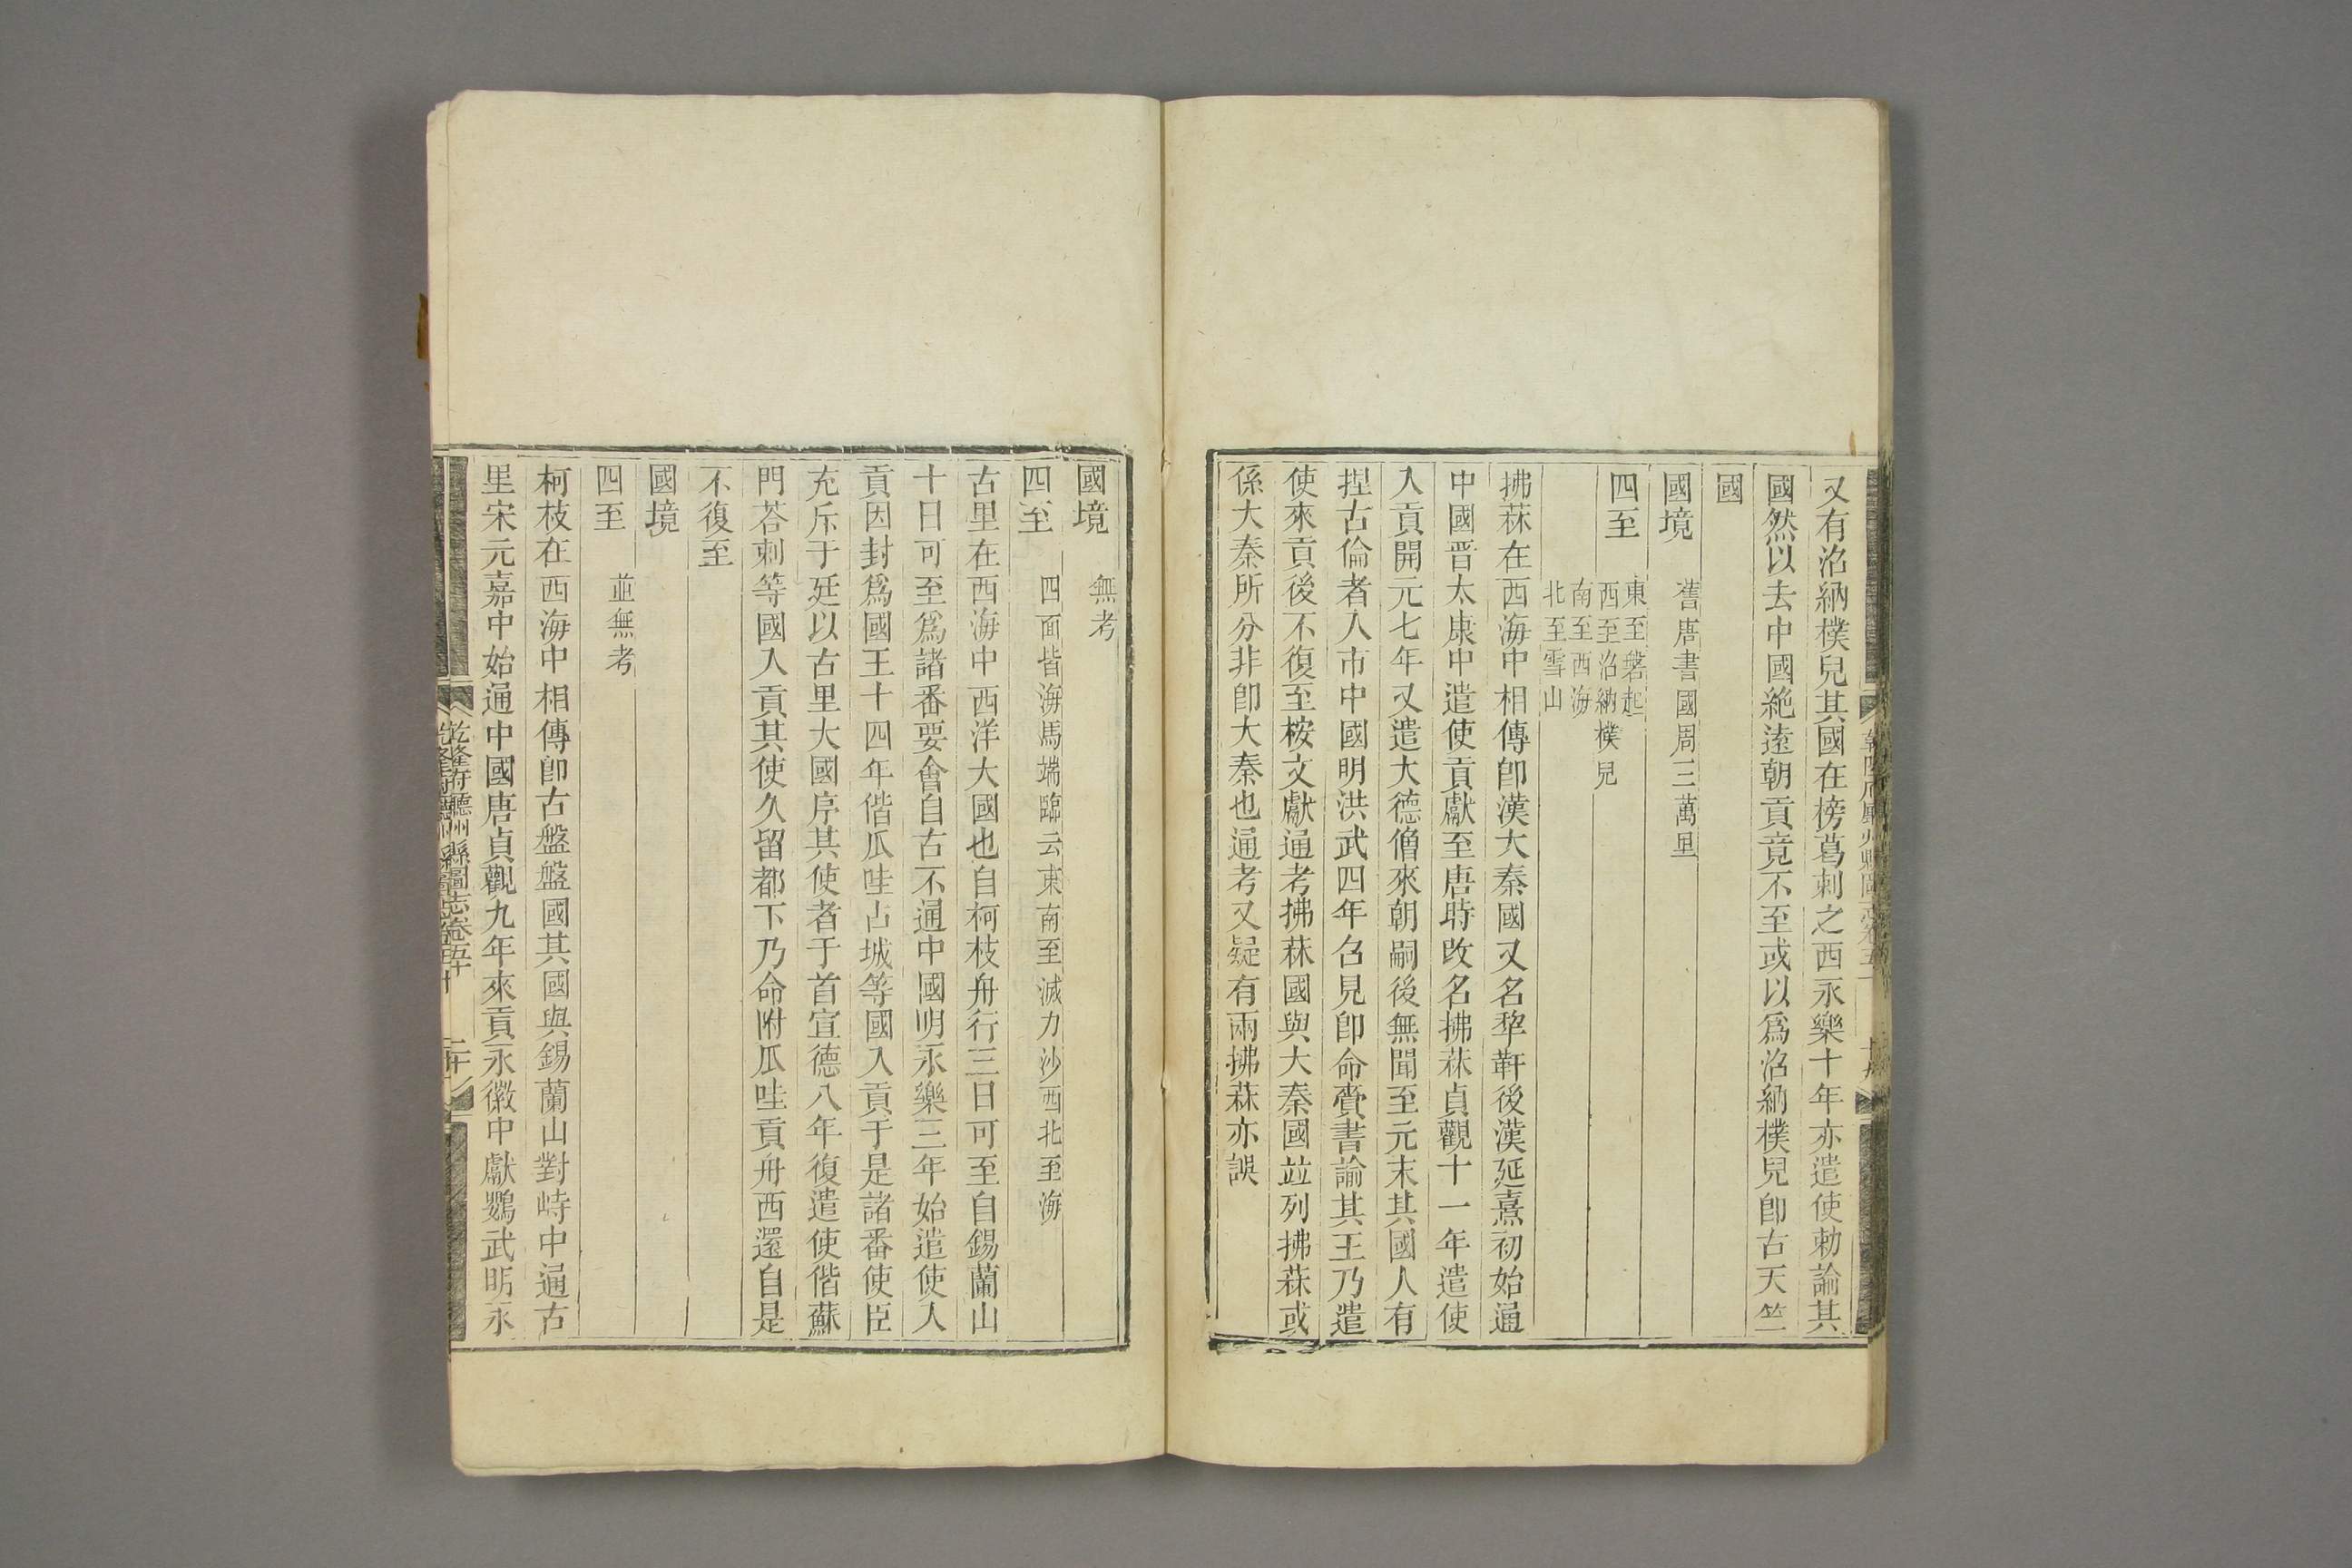 又有沼納樸兒其國在榜葛剌之西永樂十年亦遣使勅諭其
國然以去中國絶遠朝貢竟不至或以爲沼納樸兒卽古天竺
國
國境 舊唐書國周三萬里
四至 東至㟧起
西至沼納樸兒
南至西海
北至雪山
拂菻在西海中相傳卽漢大秦國又名犂靬後漢延熹初始通
中國晋太康中遣使貢獻至唐時改名拂菻貞觀十一年遣使
入貢開元七年又遣大德僧來朝嗣後無聞至元末其國人有
揑古倫者入市中國明洪武四年召見卽命賫書諭其王乃遣
使來貢後不復至桉文獻通考拂菻國與大秦國竝列拂菻或
係大秦所分非卽大秦也通考又疑有兩拂菻亦誤
國境 無考
四至 四面皆海馬端臨云東南至滅力沙西北至海
古里在西海中西洋大國也自柯枝舟行三日可至自錫蘭山
十日可至爲諸番要會自古不通中國明永樂三年始遣使入
貢因封爲國王十四年偕瓜哇占城等國入貢于是諸番使臣
充斥于廷以古里大國序其使者于首宣德八年復遣使偕蘇
門荅剌等國入貢其使久留都下乃命附瓜哇貢舟西還自是
不復至
國境
四至 並無考
柯枝在西海中相傳卽古盤盤國其國與錫蘭山對峙中通古
里宋元嘉中始通中國唐貞觀九年來貢永徽中獻鸚武明永
乾隆府廳州縣圖志卷五十 二十